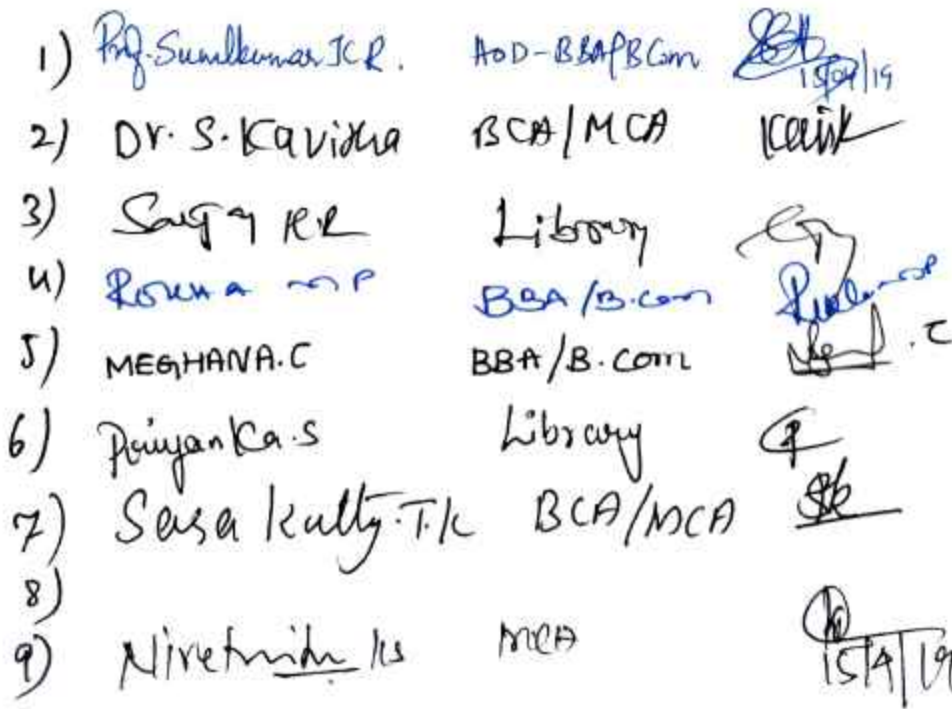 1) Prof. Sunilkumar K R. HOD-BBA/BCom 15/04/19
2) Dr. S. Kavitha BCA/MCA Kavik
3) KR Library
4) M P BBA/B.com
5) MEGHANA.C BBA/B.com .C
6) Priyanka.S Library
7) Sasa Kutty.T.K BCA/MCA
8)
9) KS MCA 15/4/19